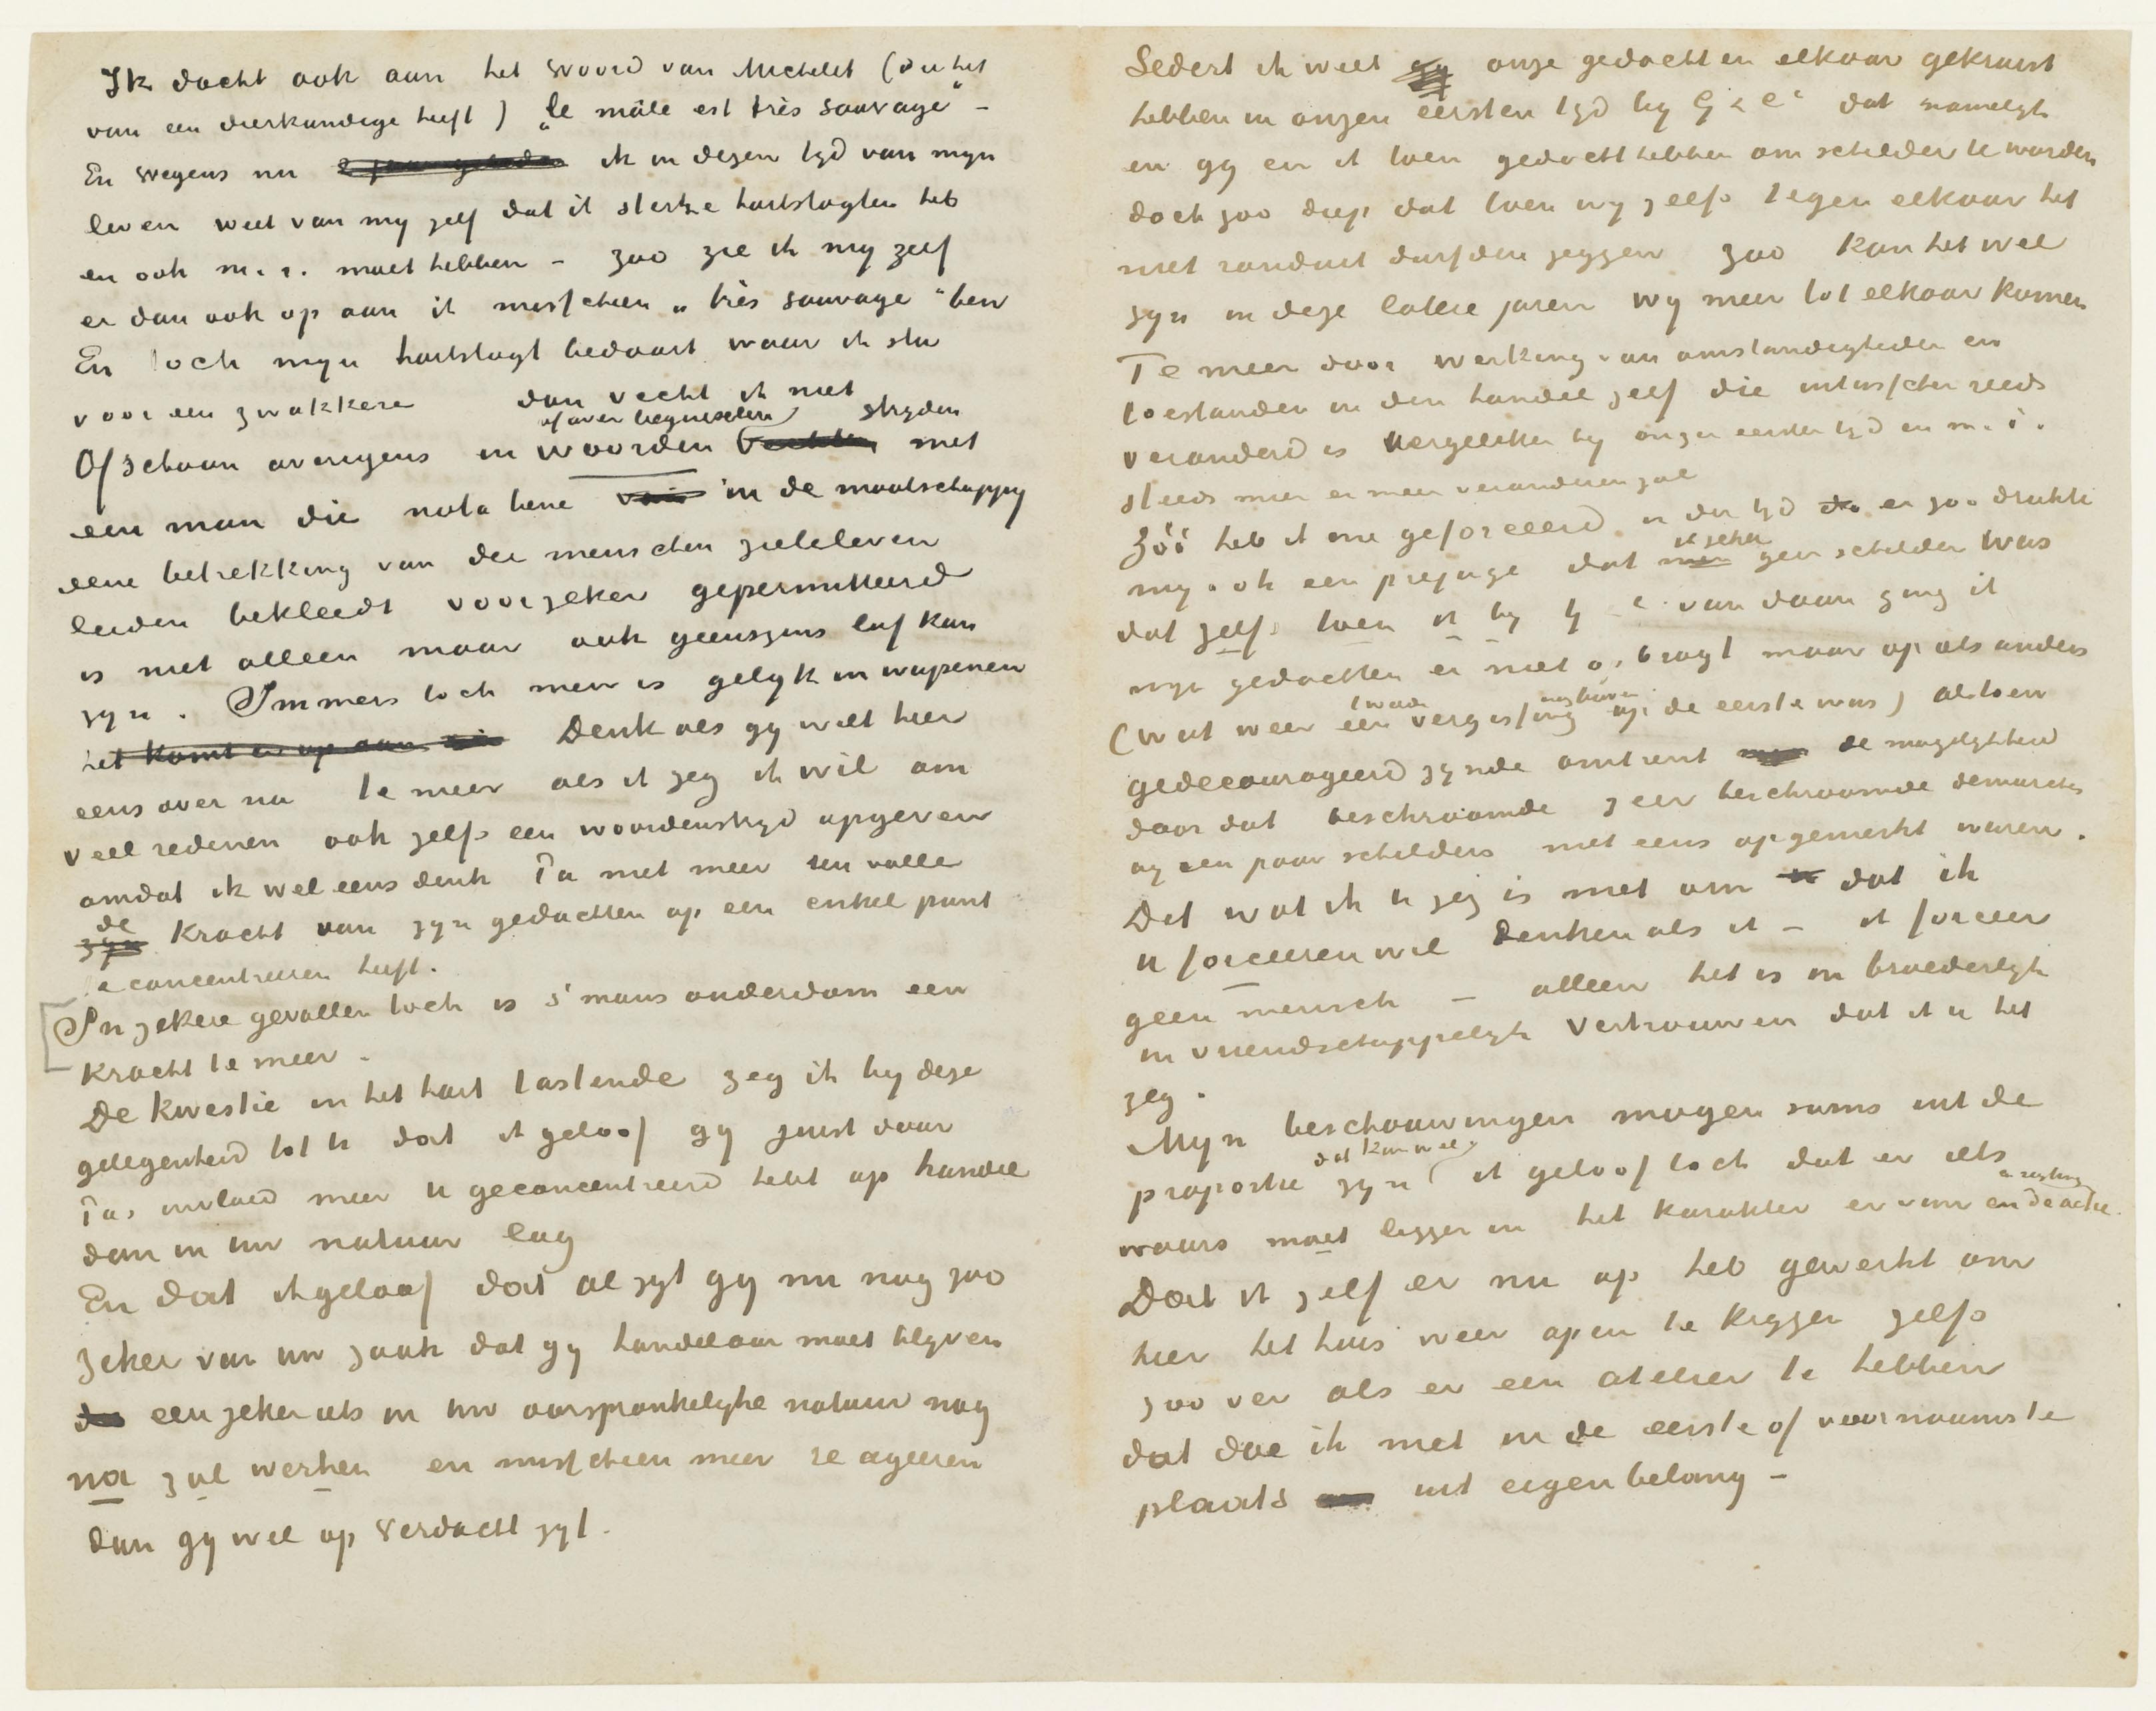 Ik dacht ook aan het woord van Michelet (die het
van een dierkundige heeft) „le mâle est très sauvage” –
En wegens nu ik in dezen tyd van myn
leven weet van my zelf dat ik sterke hartstogten heb
en ook m.i. moet hebben – zoo zie ik my zelf
er dan ook op aan ik misschien „très sauvage” ben
En toch myn hartstogt bedaart waar ik sta
voor een zwakkere dan vecht ik niet
of over beginselen stryden
Ofschoon overigens in woorden vechten met
een man die nota bene in de maatschappy
eene betrekking van der menschen zieleleven
leiden bekleedt voorzeker gepermitteerd
is niet alleen maar ook geenszins laf kan
zyn. Immers toch men is gelyk in wapenen
het komt er op aan Denk als gy wilt hier
eens over na te meer als ik zeg ik wil om
veel redenen ook zelfs een woordenstryd opgeven
omdat ik wel eens denk Pa niet meer een volle
de
zyn kracht van zyn gedachten op een enkel punt
te concentreeren heeft.
In zekere gevallen toch is s'mans ouderdom een
kracht te meer.
De kwestie in het hart tastende zeg ik by deze
gelegenheid tot U dat ik geloof gy juist door
Pa's invloed meer U geconcentreerd hebt op handel
dan in uw natuur lag
En dat ik geloof dat al zyt gy nu nog zoo
zeker van uw zaak dat gy handelaar moet blyven
een zeker iets in uw oorspronkelyke natuur nog
na zal werken en misschien meer reageeren
dan gy wel op verdacht zyt.
Sedert ik weet onze gedachten elkaar gekruist
hebben in onzen eersten tyd by G & Cie dat namelyk
en gy en ik toen gedacht hebben om schilder te worden
doch zoo diep dat toen wy zelfs tegen elkaar het
niet ronduit durfden zeggen zoo kan het wel
zyn in deze latere jaren wy meer tot elkaar komen
Te meer door werking van omstandigheden en
toestanden in den handel zelf die intusschen reeds
veranderd is vergeleken by onzen eersten tyd en m.i.
steeds meer en meer veranderen zal
Zóó heb ik me geforceerd in der tyd en zoo drukte
my ook een prejuge dat
ik zeker
geen schilder was
dat zelfs toen ik by G Cie van daan ging ik
myn gedachten er niet op bragt maar op iets anders
(wat weer een
tweede
vergissing
nog boven
op de eerste was) als toen
gedecourageerd zynde omtrent de mogelykheid
door dat beschroomde zeer beschroomde demarches
by een paar schilders niet eens opgemerkt waren.
Dit wat ik U zeg is niet om dat ik
U forceeren wil denken als ik – ik forceer
geen mensch – alleen het is in broederlyk
in vriendschappelyk vertrouwen dat ik U het
zeg.
Myn beschouwingen mogen soms uit de
dat kan wel
proportie zyn ik geloof toch dat er iets
waars moet liggen in het karakter er van en de actie
en rigting
Dat ik zelf er nu op heb gewerkt om
hier het huis weer open te krygen zelfs
zoo ver als er een atelier te hebben
dat doe ik niet in de eerste of voornaamste
plaats uit eigenbelang –